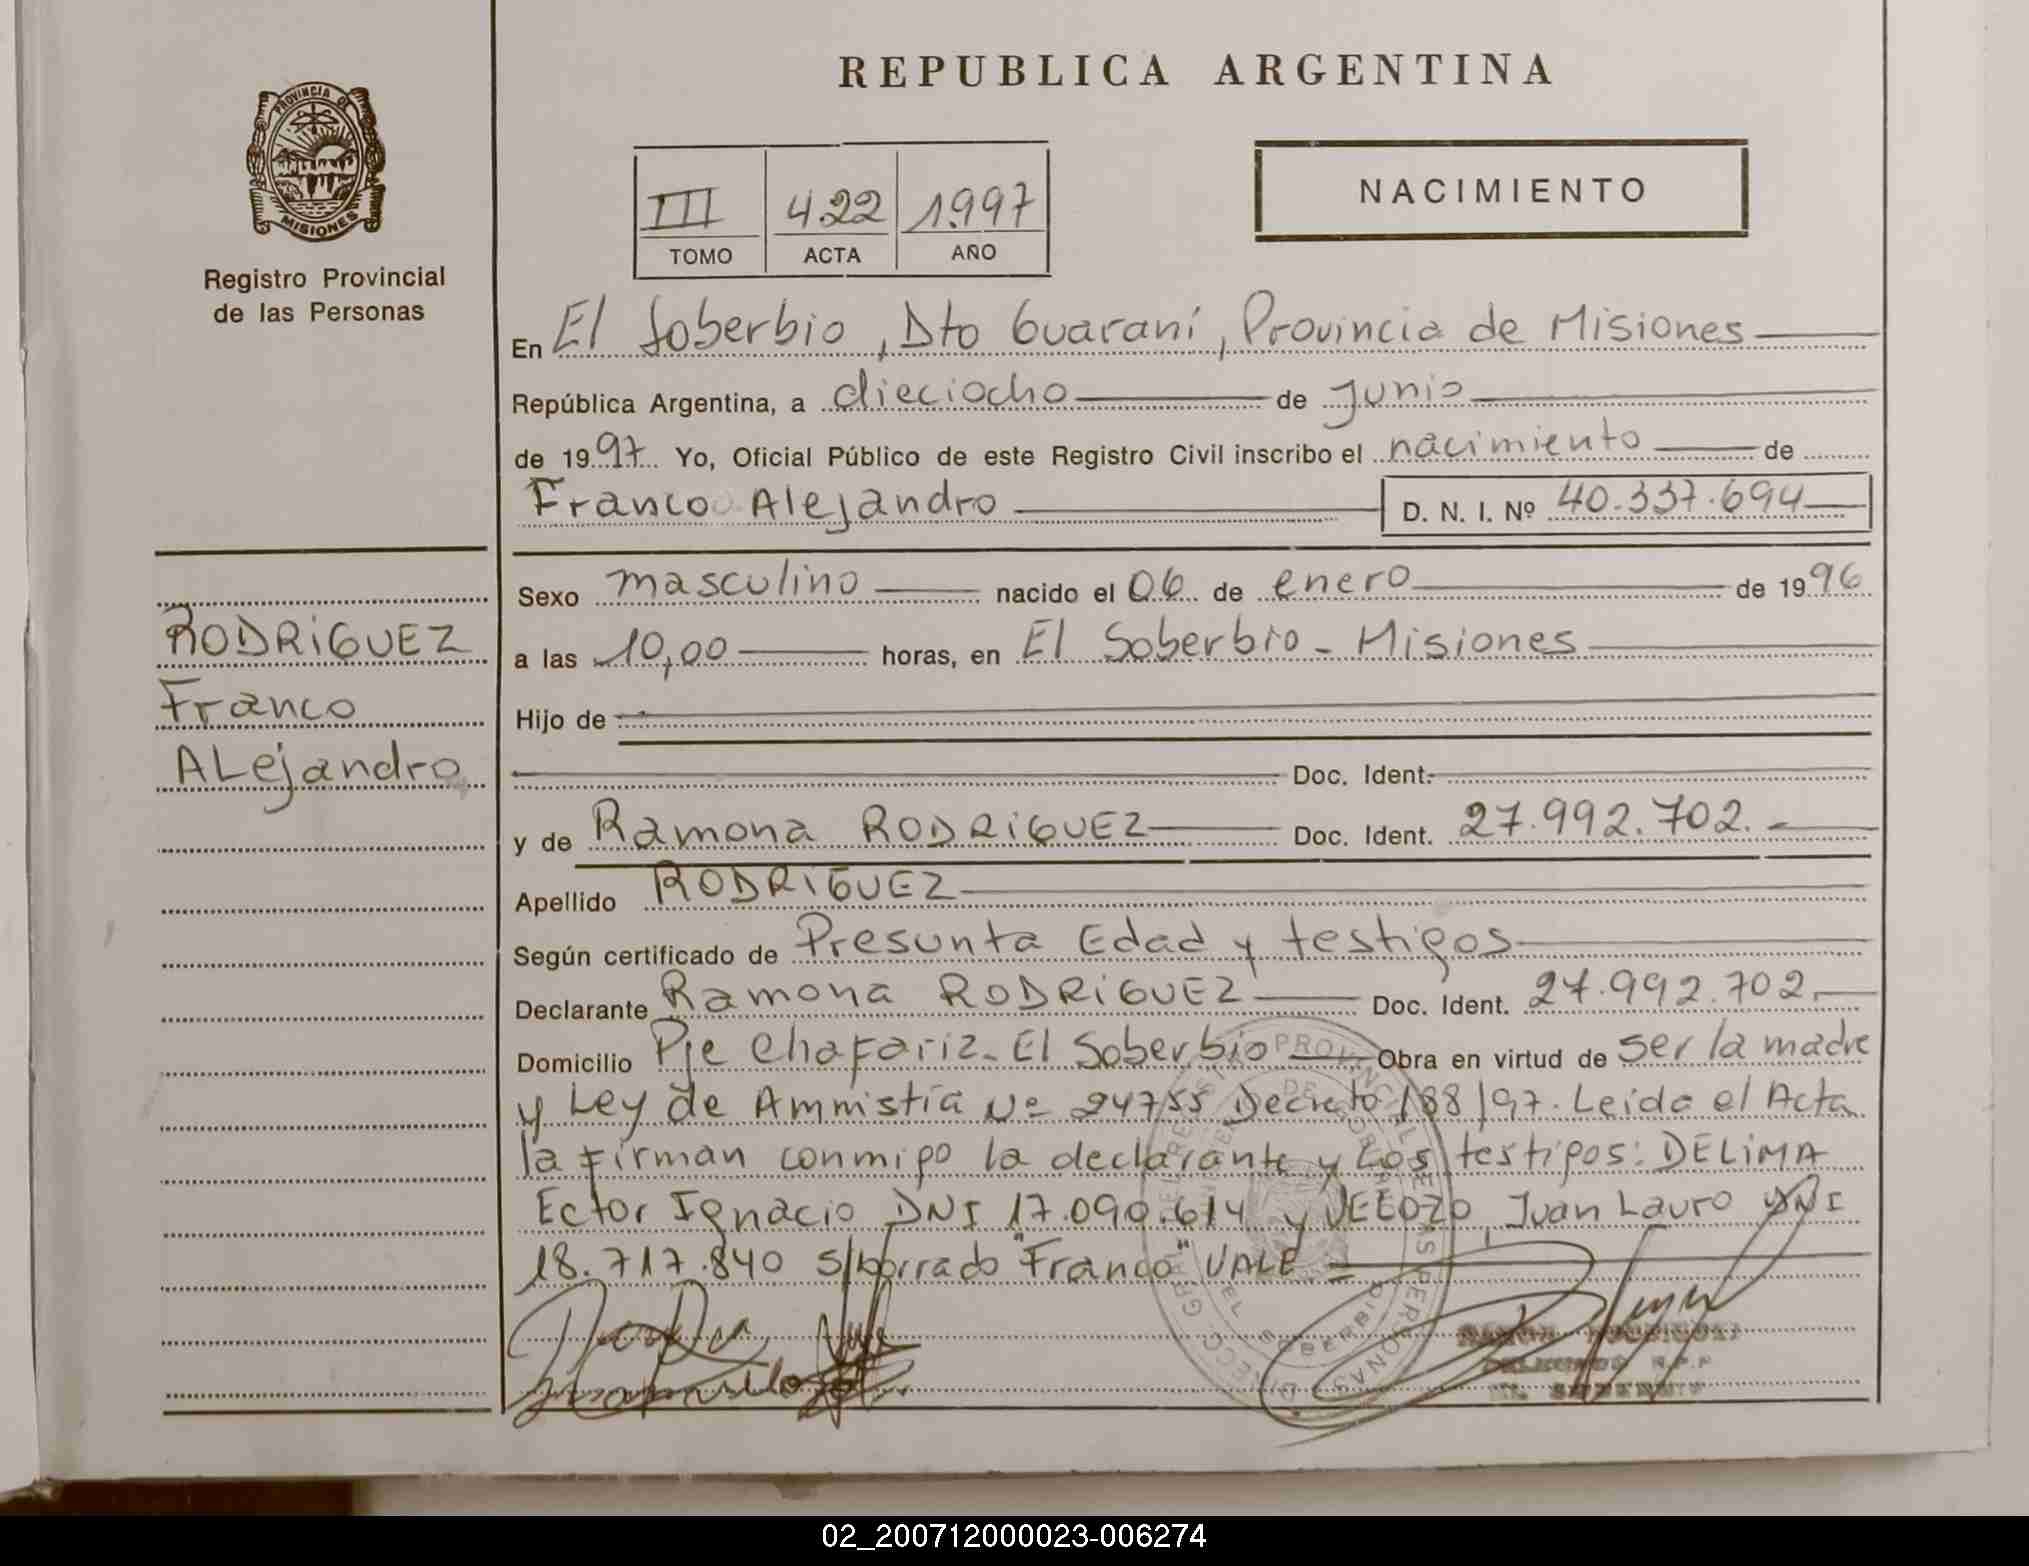 REPUBLICA ARGENTINA
PROVINCIA DE
MISIONES
Registro Provincial
de las Personas
III 422 1997
TOMO ACTA AÑO
NACIMIENTO
En El Soberbio, Dto Guaraní, Provincia de Misiones
República Argentina, a dieciocho de Junio
de 1997 Yo, Oficial Público de este Registro Civil inscribo el nacimiento de
Franco Alejandro D. N. I. Nº 40.337.694
RODRIGUEZ
Franco
ALejandro
Sexo masculino nacido el 06 de enero de 1996
a las 10,00 horas, en El Soberbio - Misiones
Hijo de
Doc. Ident.
y de Ramona RODRIGUEZ Doc. Ident. 27.992.702.-
Apellido RODRIGUEZ
Según certificado de Presunta Edad y testigos
Declarante Ramona RODRIGUEZ Doc. Ident. 27.992.702.
Domicilio Pje Chafariz - El Soberbio Obra en virtud de ser la madre
y Ley de Amnistía Nº 24755 Decreto 188/97. Leida el Acta
la firman conmigo la declarante y los testigos: DELIMA
Ector Ignacio DNI 17.090.614 y Juan Lauro DNI
18.717.840 s/borrado "Franco" VALE
02_200712000023-006274